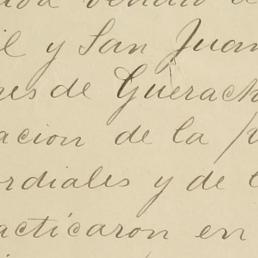 il y San Juan
res de Guerach
acion de la
rdiales y de
acticaron en